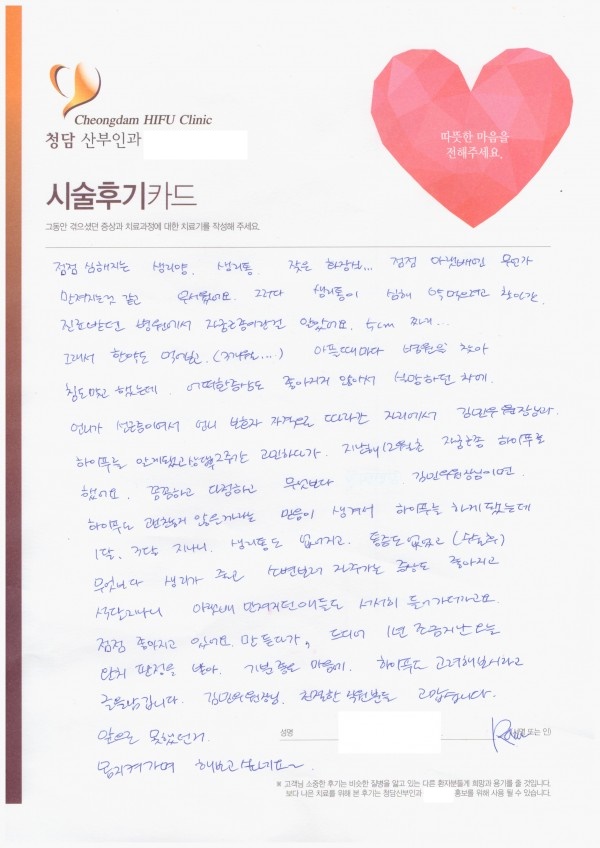 Cheongdam HIFU Clinic
청담 산부인과
따뜻한 마음을
전해주세요.
시술후기카드
그동안 겪으셨던 증상과 치료과정에 대한 치료기를 작성해 주세요.
점점 심해지는 생리양. 생리통. 잦은 화장실... 점점 아랫배엔 무언가
만져지는것 같고 무서웠어요. 그러다 생리통이 심해 약먹으려고 찾아간
진료받던 병원에서 자궁근종이란걸 알았어요. 4cm 짜리...
그래서 한약도 먹어보고. (3개월....) 아플때마다 병원을 찾아
침도맞고 했는데. 어떠한증상도 좋아지지 않아서 절망하던 차에.
언니가 선근증이여서 언니 보호자 자격으로 따라간 자리에서 김민우원장님과.
하이푸를 알게됐고 2주간 고민하다가. 지난해 12월초 자궁근종 하이푸를
했어요. 꼼꼼하고 다정하고 무엇보다 김민우원장님이면.
하이푸도 괜찮지 않을까라는 믿음이 생겨서 하이푸를 하게됐는데
1달. 3달 지나니. 생리통도 없어지고. 통증도 없었고
무엇보다 생리가 줄고 소변보러 자주가는 증상도 좋아지고
석달지나니 아랫배 만져지던애들도 서서히 들어가더라고요.
점점 좋아지고 있어요. 만 듣다가, 드디어 1년 조금지난 오늘
완치 판정을 받아. 기분좋은 마음에. 하이푸도 고려해보시라고
글을남깁니다. 김민우원장님. 친절한 직원분들 고맙습니다.
앞으로 못했던거.
몸지켜가며 해보고 싶네요~
성명
(서명 또는 인)
※ 고객님 소중한 후기는 비슷한 질병을 앓고 있는 다른 환자분들께 희망과 용기를 줄 것입니다.
보다 나은 치료를 위해 본 후기는 청담산부인과 홍보를 위해 사용 될 수 있습니다.